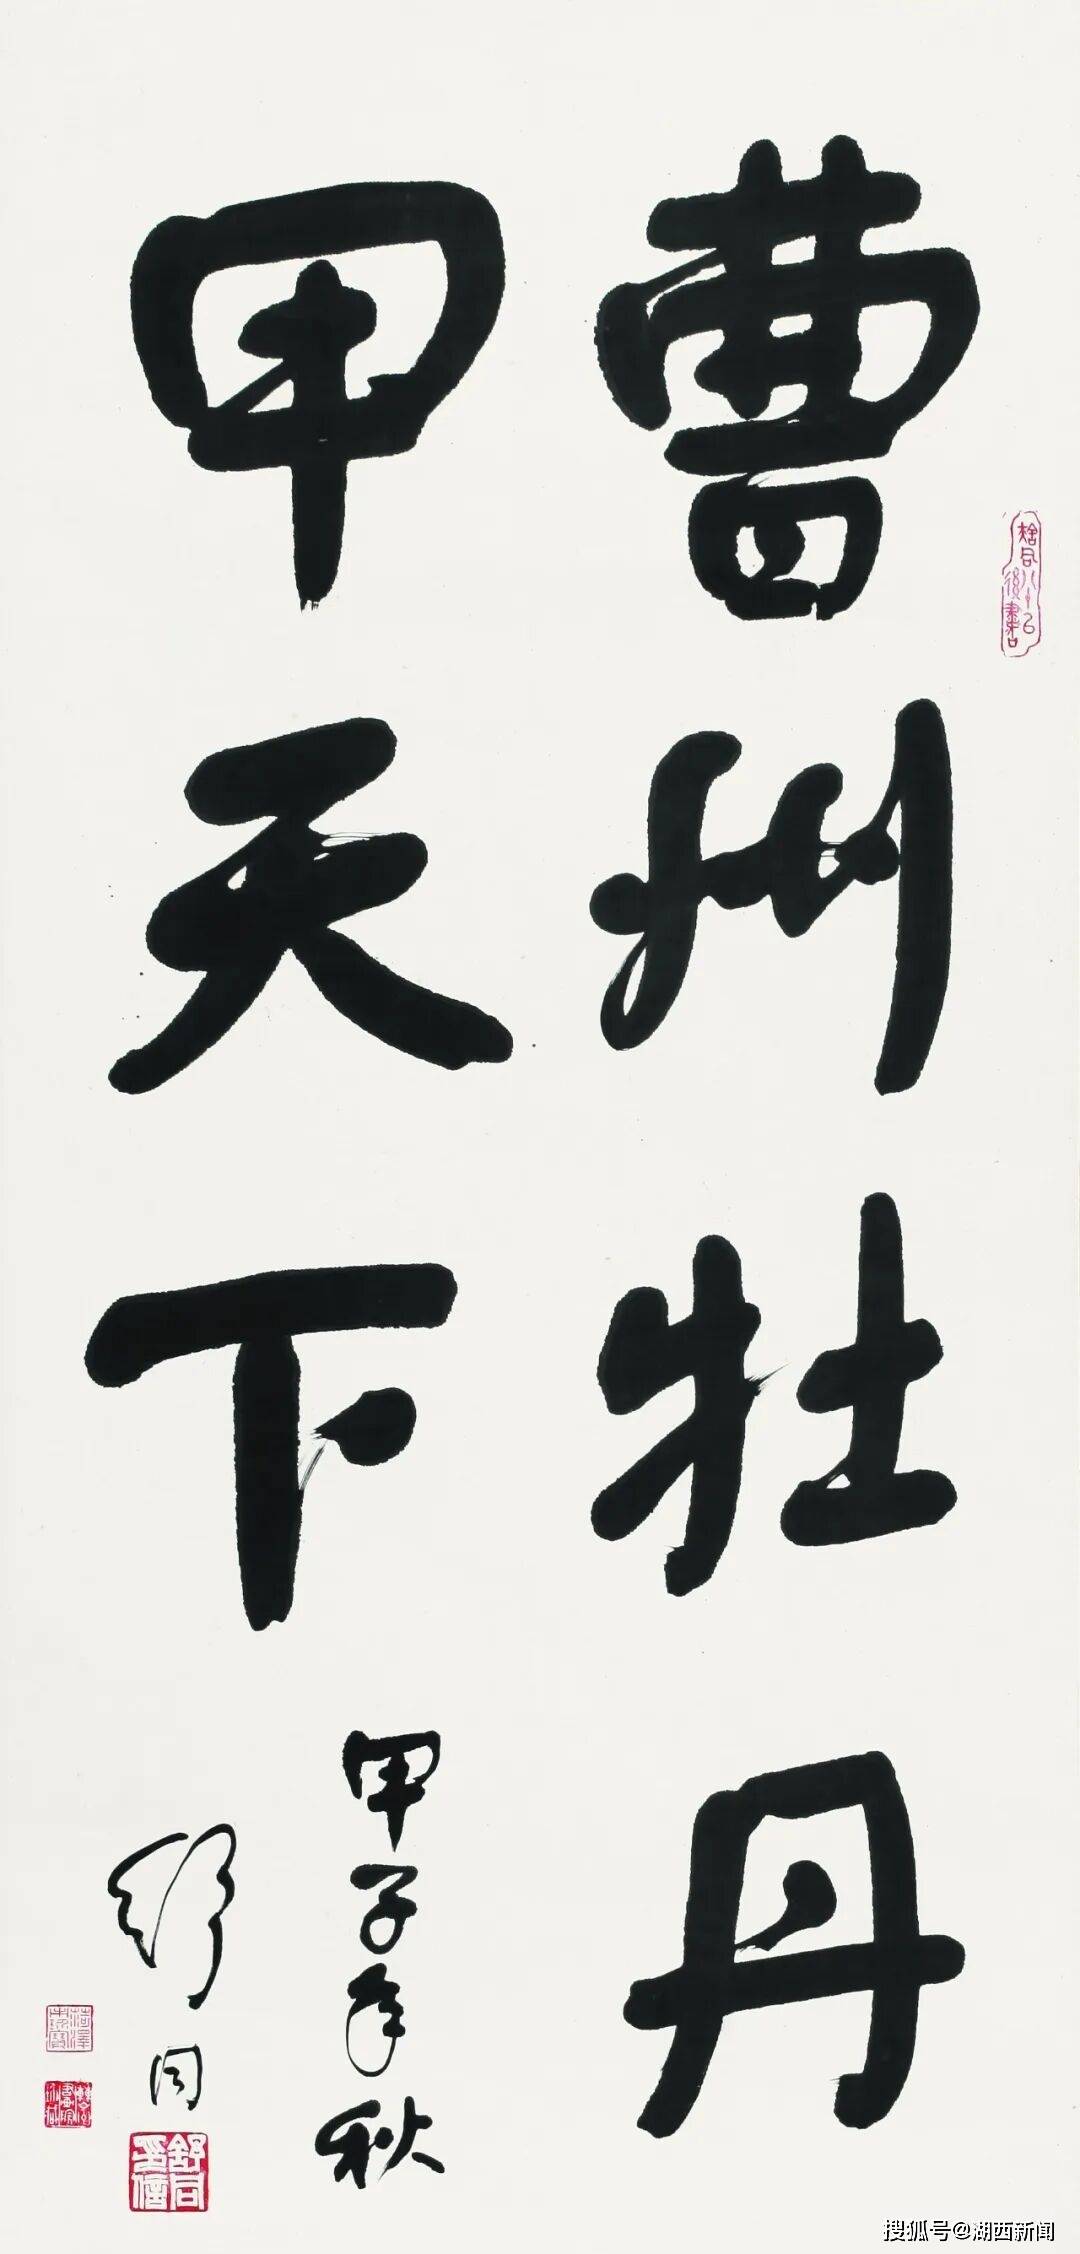 曹州牡丹
甲天下
甲子年秋
舒同
舒同
搜狐号@湖西新闻